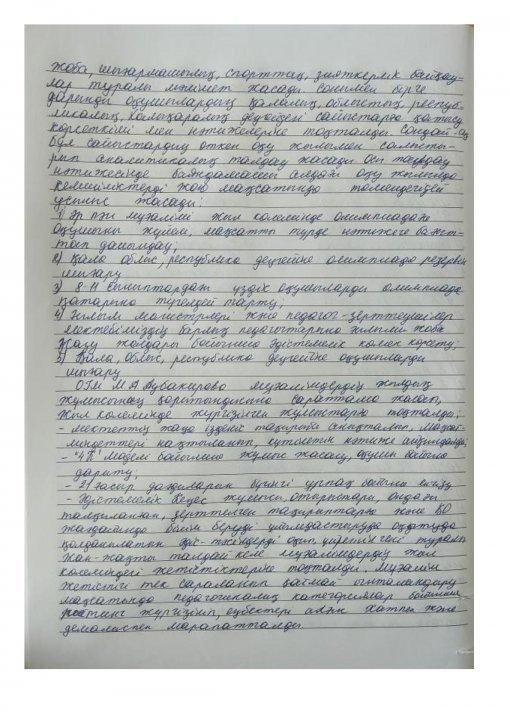 жоба, шығармашылық, спорттық, зияткерлік байқау-
лар туралы мәлімет жасады. Сонымен бірге
дарынды оқушылардың қалалық, облыстық, респуб-
ликалық, халықаралық деңгейдегі сайыстарға қатысу
көрсеткіші мен нәтижелеріне тоқталды. Сондай-ақ
бұл сайыстардың өткен оқу жылымен салысты-
рып аналитикалық талдау жасады. Осы талдау
нәтижесінде баяндамашы алдағы оқу жылында
кемшіліктерді жою мақсатында төмендегідей
ұсыныс жасады:
1) Әр пән мұғалімі жыл көлемінде олимпиадаға
оқушыны жүйелі, мақсатты түрде нәтижеге бағыт-
тап дайындау;
2) Қала, облыс, республика деңгейіне олимпиада резервін
шығару
3) 8-11 сыныптардағы үздік оқушыларды олимпиада
қатарына түгелдей тарту;
4) Ғылым магистрлері және педагог-зерттеушілер
мектебіміздің барлық педагогтарына ғылыми жоба
жазу жолдары бойынша әдістемелік көмек көрсету;
5) Қала, облыс, республика деңгейіне оқушыларды
шығару
ОІЖ М.А Аубакирова мұғалімдердің жылдық
жұмысының қорытындысына сараптама жасап,
жыл көлемінде жүргізілген жұмыстарға тоқталды;
- мектептің жаңа ізденіс тақырыбы анықталып, мақсат-
міндеттері нақтыланып, күтілетін нәтиже айқындалды;
- "4К" моделі бойынша жұмыс жасау, оқушы бойына
дарыту;
- 21 ғасыр дағдыларын бүгінгі ұрпақ бойына сіңіру
- Әдістемелік Кеңес жұмысы, отырыстары, ондағы
талқыланған, зерттелген тақырыптары және ҚО
жағдайында білім беруді ұйымдастыруда оқытуда
қолданылатын әдіс-тәсілдерді оқып, үйренгені туралы
жан-жақты талдай келе мұғалімдердің жыл
көлеміндегі жетістіктеріне тоқталды. Мұғалім
жетістігі тек сараланып қоймай ынталандыру
мақсатында педагогикалық категориялар бойынша
рейтинг жүргізіліп, еңбектері алғыс хатпен және
демалыспен марапатталды.